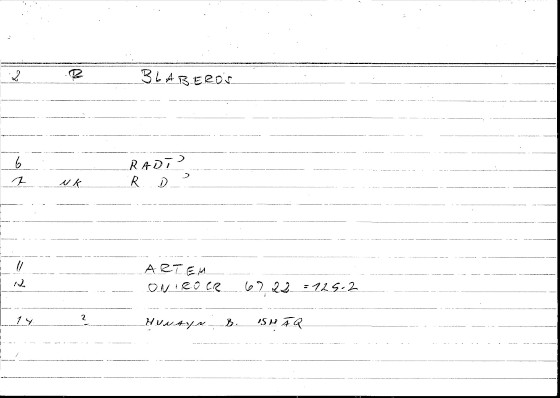 2 R BLABEROS
6 RADĪʾ
7 NK R D ʾ
11 ARTEM
12 ONIROCR 67,22 = 125.2
14 ? ḤUNAYN B. ISḤĀQ